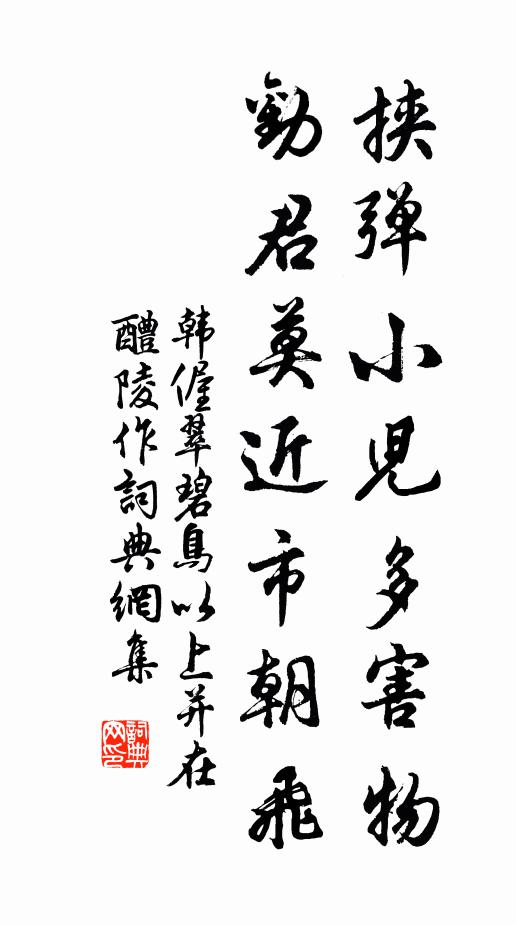 挟弹小児多害物
劝君莫近市朝飛
韩偓翠碧鳥以上并在
醴陵作詞典網集
詞典网印